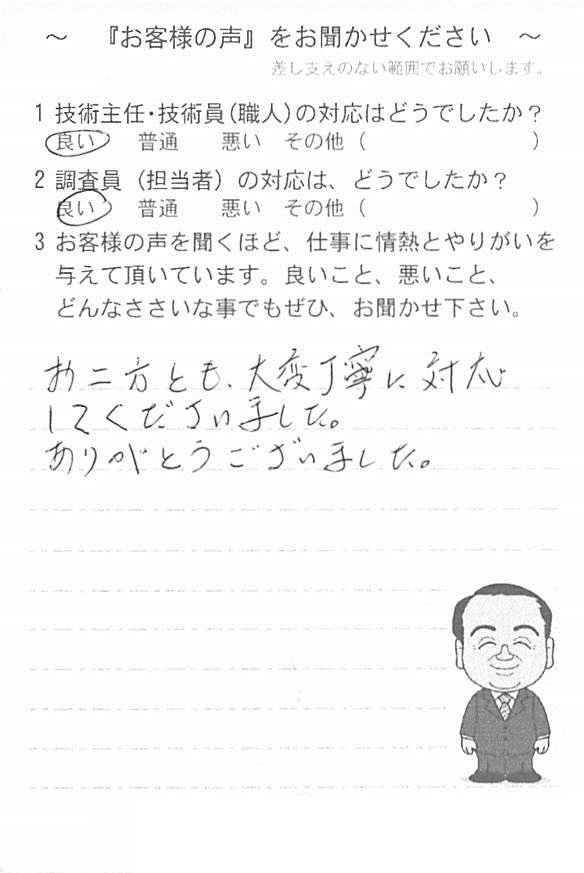 ～ 『お客様の声』をお聞かせください ～
差し支えのない範囲でお願いします。
1 技術主任・技術員(職人)の対応はどうでしたか？
良い 普通 悪い その他（ ）
2 調査員（担当者）の対応は、どうでしたか？
良い 普通 悪い その他（ ）
3 お客様の声を聞くほど、仕事に情熱とやりがいを
与えて頂いています。良いこと、悪いこと、
どんなささいな事でもぜひ、お聞かせ下さい。
お二方とも、大変丁寧に対応
してくださいました。
ありがとうございました。